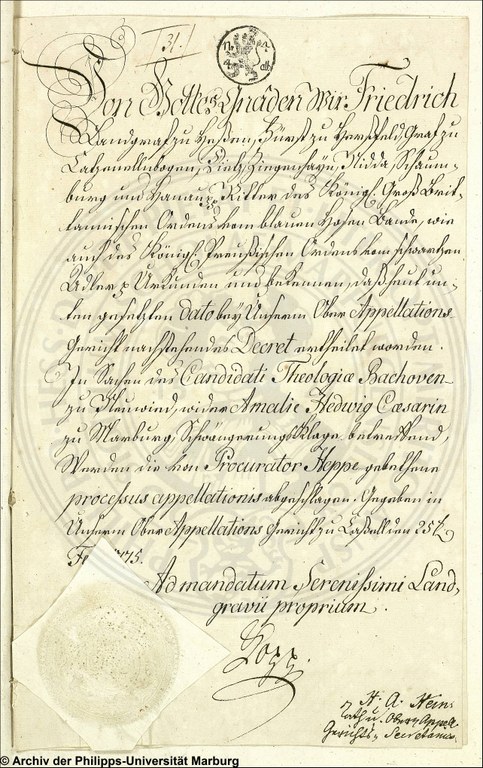 31.
Von Gottes Gnaden Wir Friedrich
Landgraf zu Heßen, Fürst zu Herßfeld, Graf zu
Catzenelnbogen, Dietz, Ziegenhayn, Nidda, Schaum-
burg und Hanau, Ritter des Königl. Groß Brit-
tannischen Ordens vom blauen Hosen Bande, wie
auch des Königl. Preußischen Ordens vom schwartzen
Adler Urkunden und bekennen, daß heut un-
ten gesetzten dato bey Unserm Ober Appellations-
Gericht nachstehendes Decret ertheilet worden.
In Sachen des Candidati Theologiæ Bachoven
zu Neuwied, wider Amalie Hedwig Cæsarin
zu Marburg, Schwängerungs Klage betreffend,
Werden die von Procurator Heppe gebethene
processus appellationis abgeschlagen. Gegeben in
Unserm Ober Appellations Gericht zu Caßell den 25t
1775.
Ad mandatum Serenissimi Land-
gravii proprium.
H. A. Hein
Ober Appell.
Gerichts Secretarius
© Archiv der Philipps-Universität Marburg